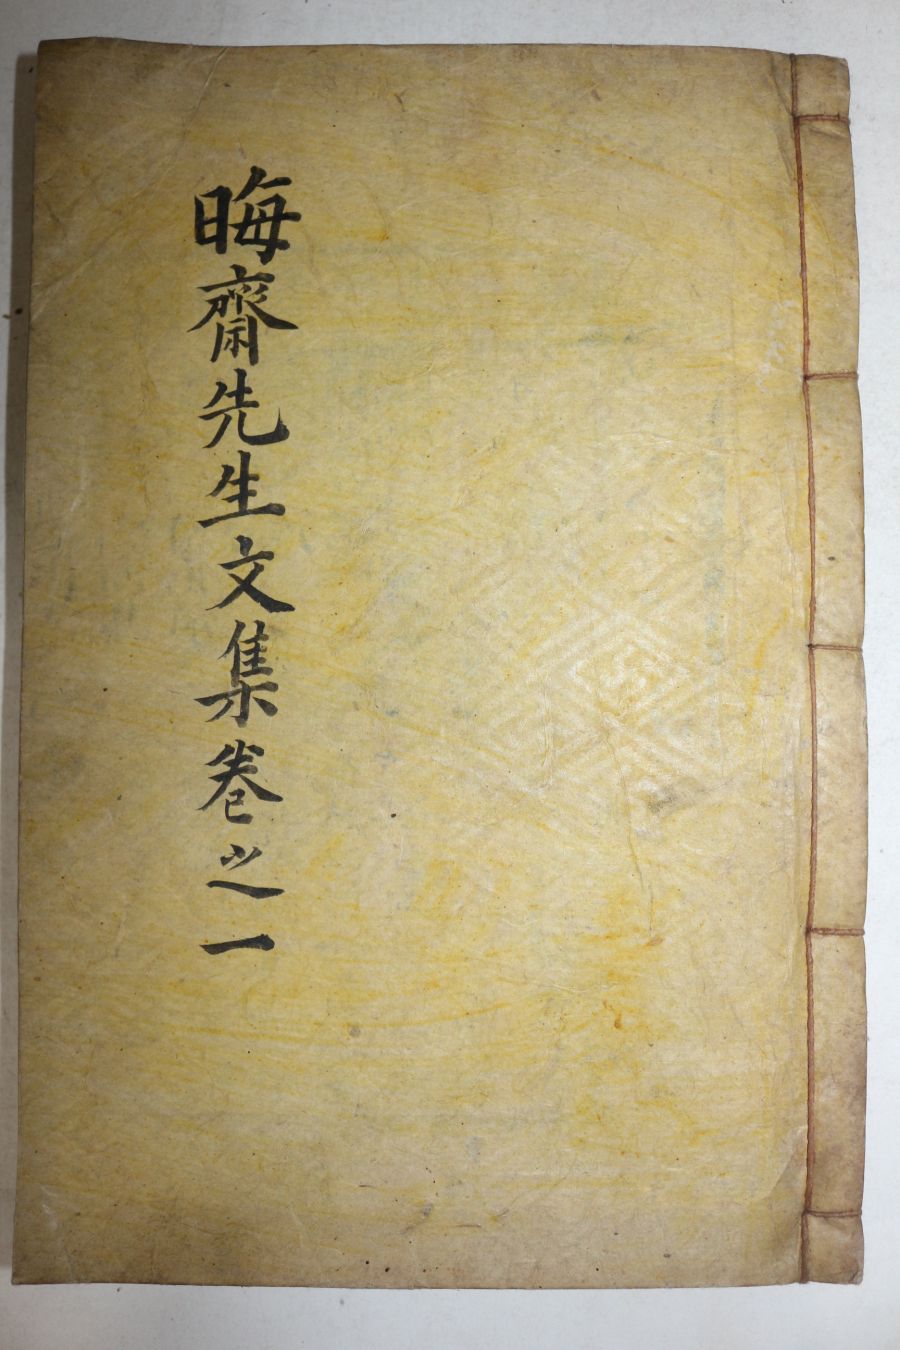 晦齋先生文集卷之一